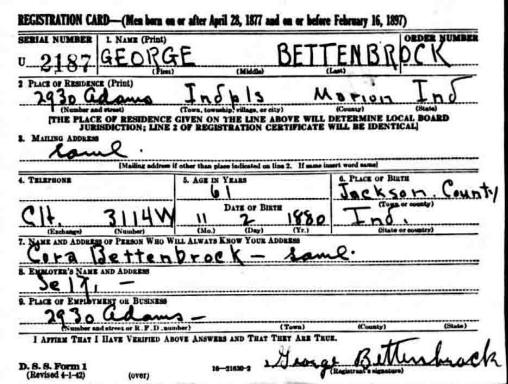 REGISTRATION CARD—(Men born on or after April 28, 1877 and on or before February 16, 1897)
SERIAL NUMBER 1. NAME (Print) ORDER NUMBER
U 2187 GEORGE BETTENBROCK
(First) (Middle) (Last)
2 PLACE OF RESIDENCE (Print)
2930 Adams Indpls Marion Ind
(Number and street) (Town, township, village, or city) (County) (State)
[THE PLACE OF RESIDENCE GIVEN ON THE LINE ABOVE WILL DETERMINE LOCAL BOARD
JURISDICTION; LINE 2 OF REGISTRATION CERTIFICATE WILL BE IDENTICAL]
3. MAILING ADDRESS
same.
[Mailing address if other than place indicated on line 2. If same insert word same]
4. TELEPHONE 5. AGE IN YEARS 6. PLACE OF BIRTH
61 Jackson County
DATE OF BIRTH (Town or county)
CH. 3114W 11 2 1880 Ind.
(Exchange) (Number) (Mo.) (Day) (Yr.) (State or country)
7. NAME AND ADDRESS OF PERSON WHO WILL ALWAYS KNOW YOUR ADDRESS
Cora Bettenbrock — same.
8. EMPLOYER'S NAME AND ADDRESS
Self, —
9. PLACE OF EMPLOYMENT OR BUSINESS
2930 Adams —
(Number and street or R. F. D. number) (Town) (County) (State)
I AFFIRM THAT I HAVE VERIFIED ABOVE ANSWERS AND THAT THEY ARE TRUE.
George Bettenbrock
D. S. S. Form 1 (Registrant's signature)
(Revised 4-1-42) (over) 16—21630-2